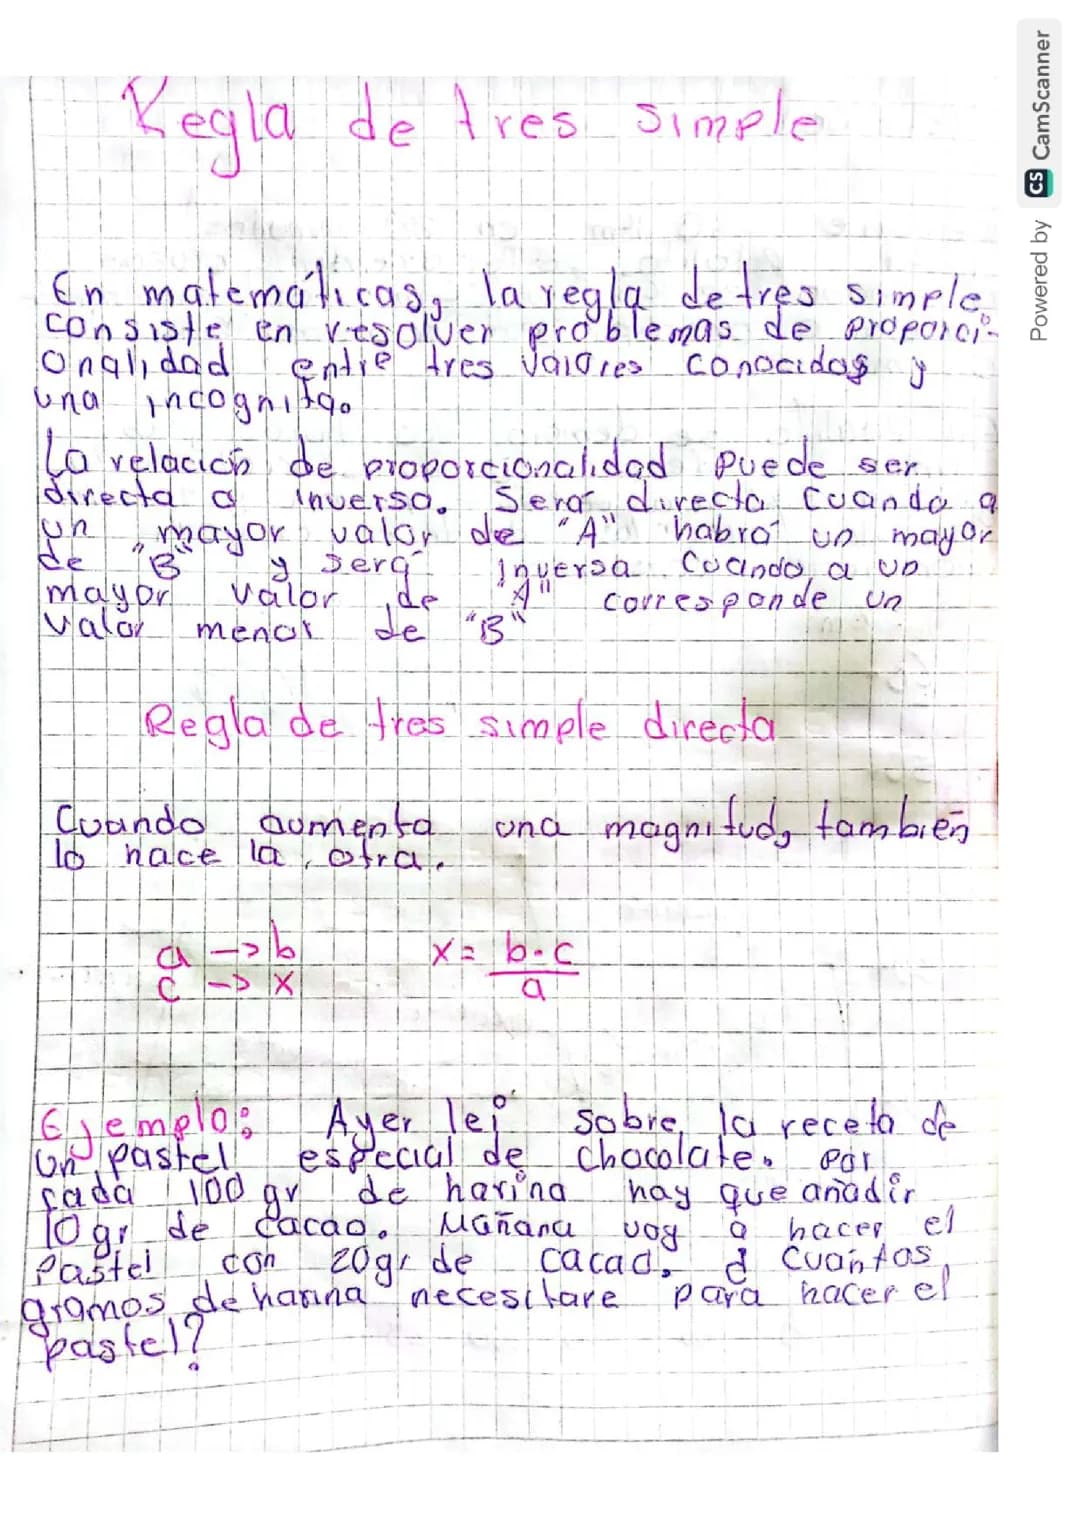 Regla de tres simple
En matemáticas, la regla de tres simple
consiste en resolver problemas de proporci-
onalidad entre tres valores conocidos y
una incognita.
La relación de proporcionalidad puede ser
directa o inversa. Será directa cuando a
un mayor valor de "A" habrá un mayor
de "B" y será inversa cuando, a un
mayor valor de "A" corresponde un
valor menor de "B"
Regla de tres simple directa
Cuando aumenta una magnitud, también
lo hace la otra.
a -> b x = b·c
c -> x a
Ejemplo: Ayer leí sobre la receta de
un pastel especial de chocolate. Por
cada 100 gr de harina hay que añadir
10 gr de cacao. Mañana voy a hacer el
Pastel con 20gr de cacao. ¿ Cuántos
gramos de harina necesitare para hacer el
pastel?
Powered by CS CamScanner